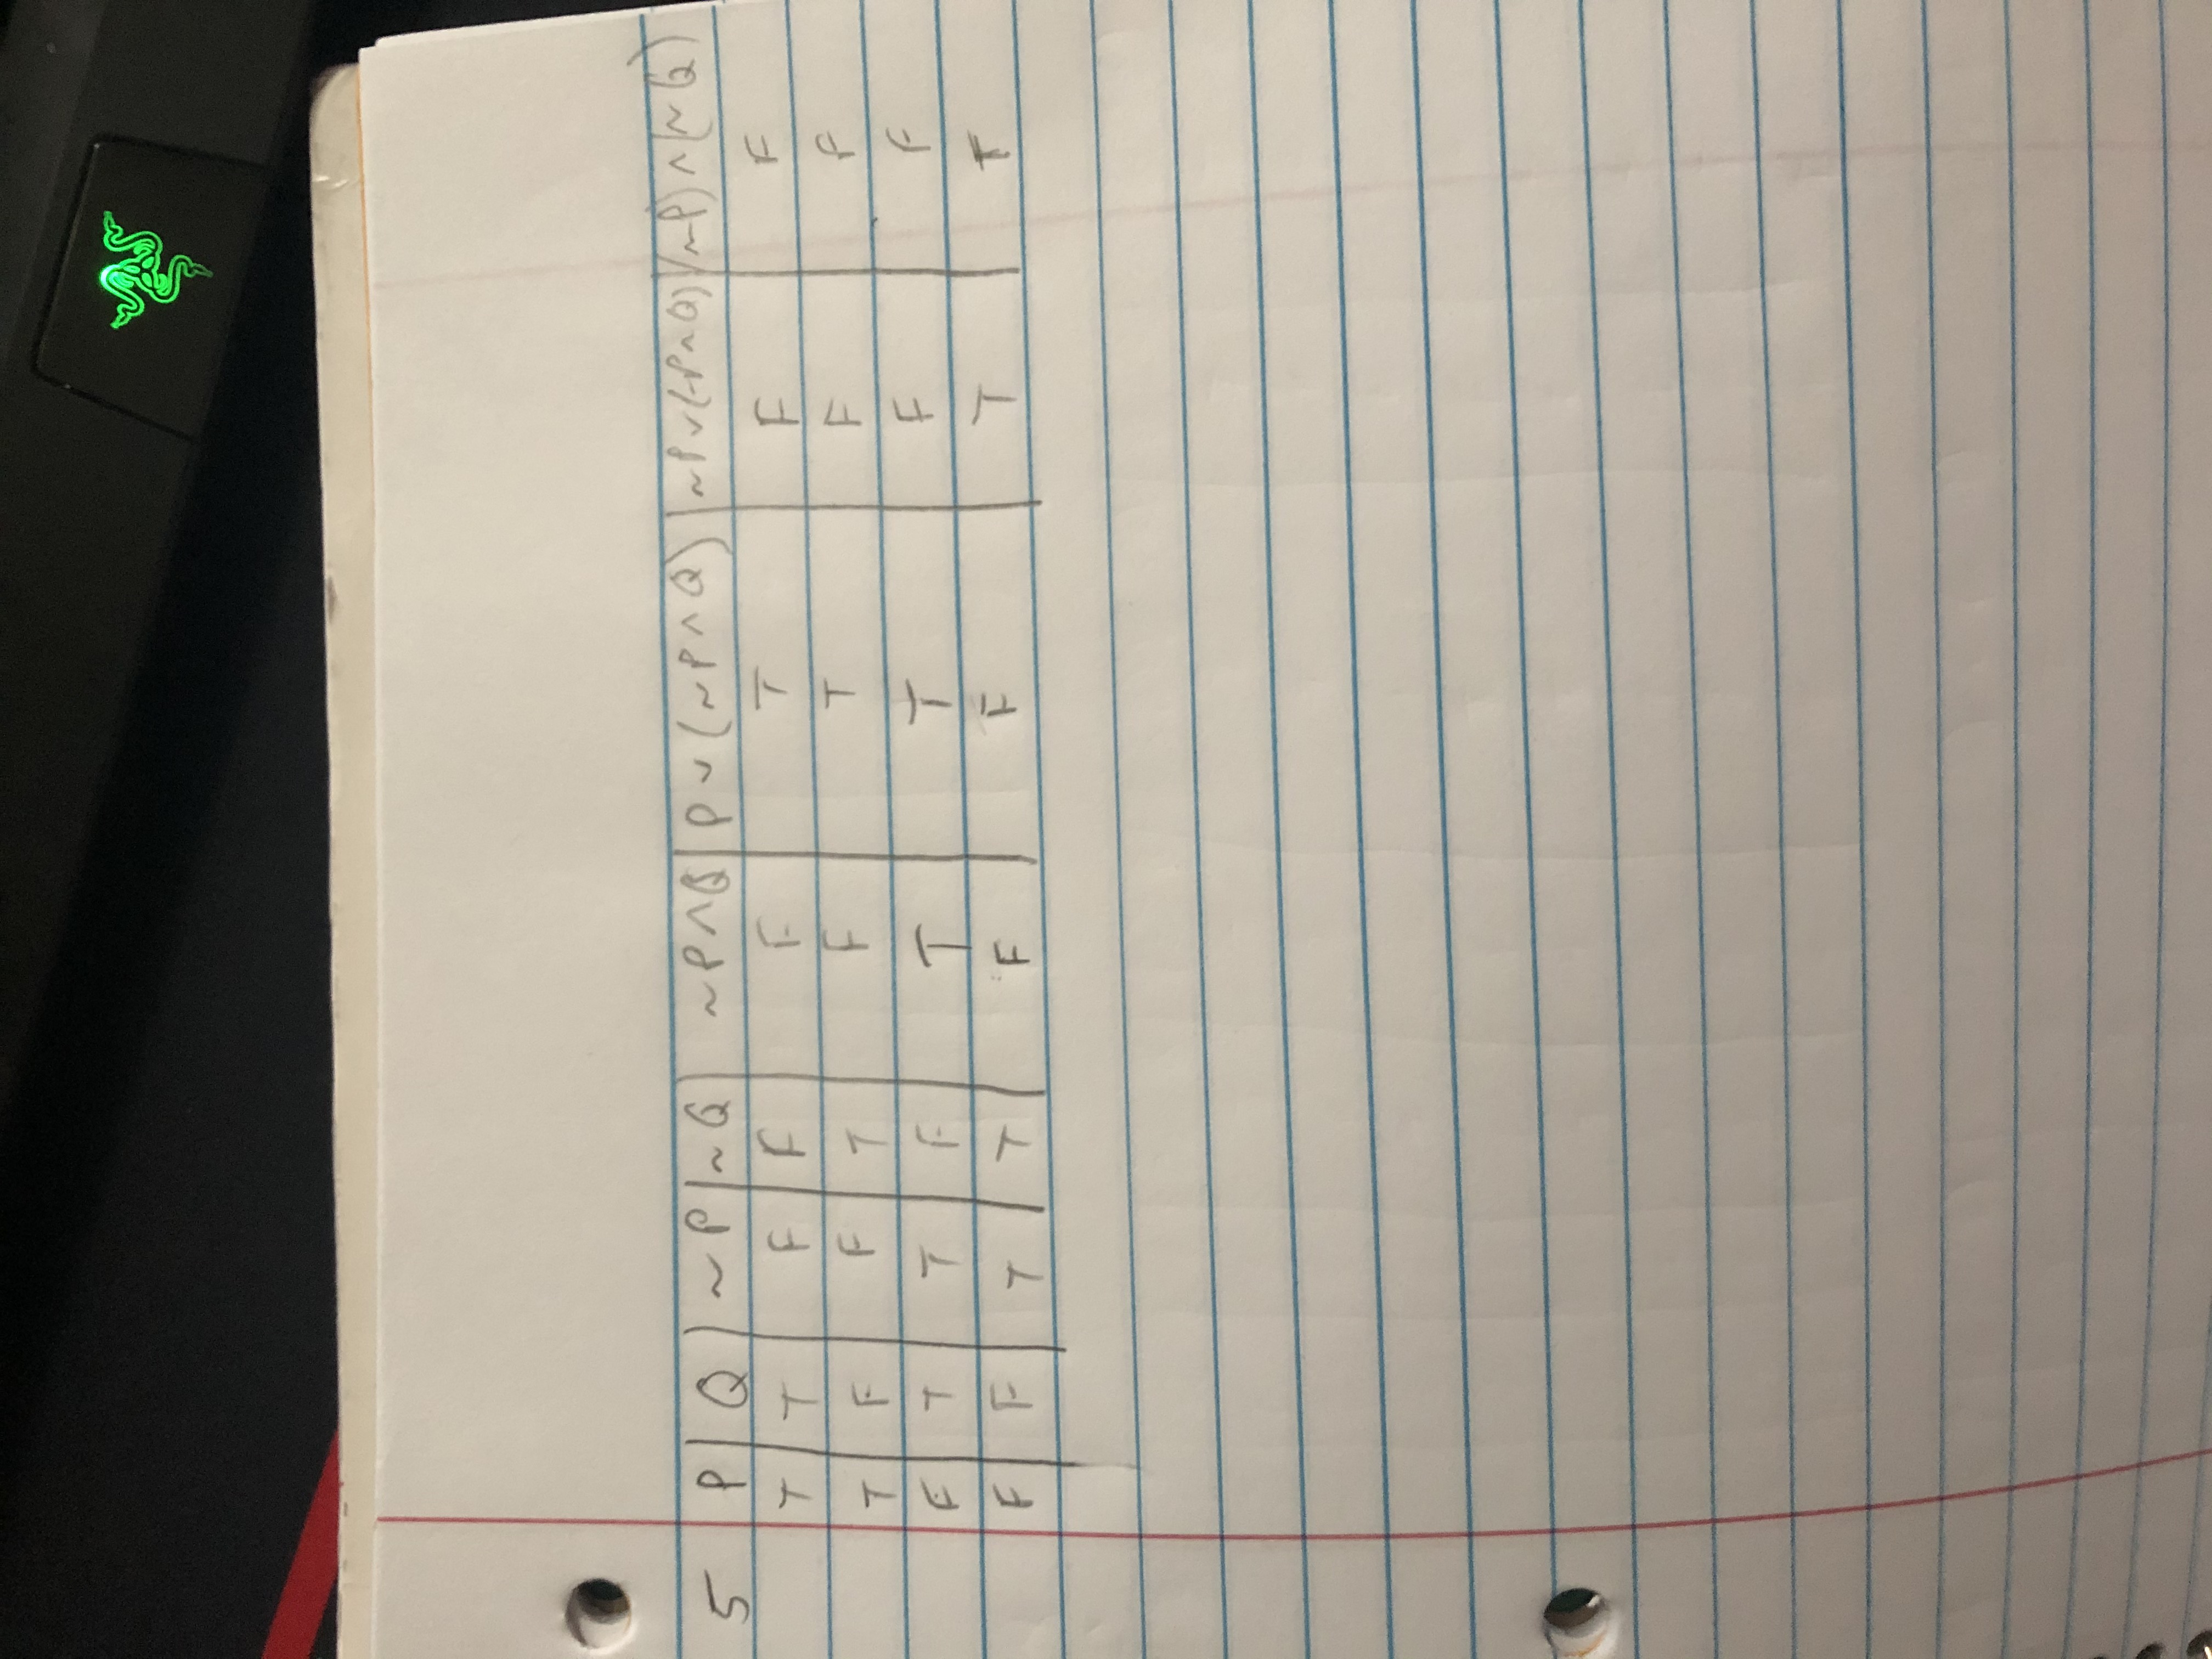 5 P Q ~P ~Q ~P∧Q P∨(~P∧Q) ~P∨(~P∧Q) (~P)∧(~Q)
T T F F F T F F
T F F T F T F F
F T T F T T F F
F F T T F F T